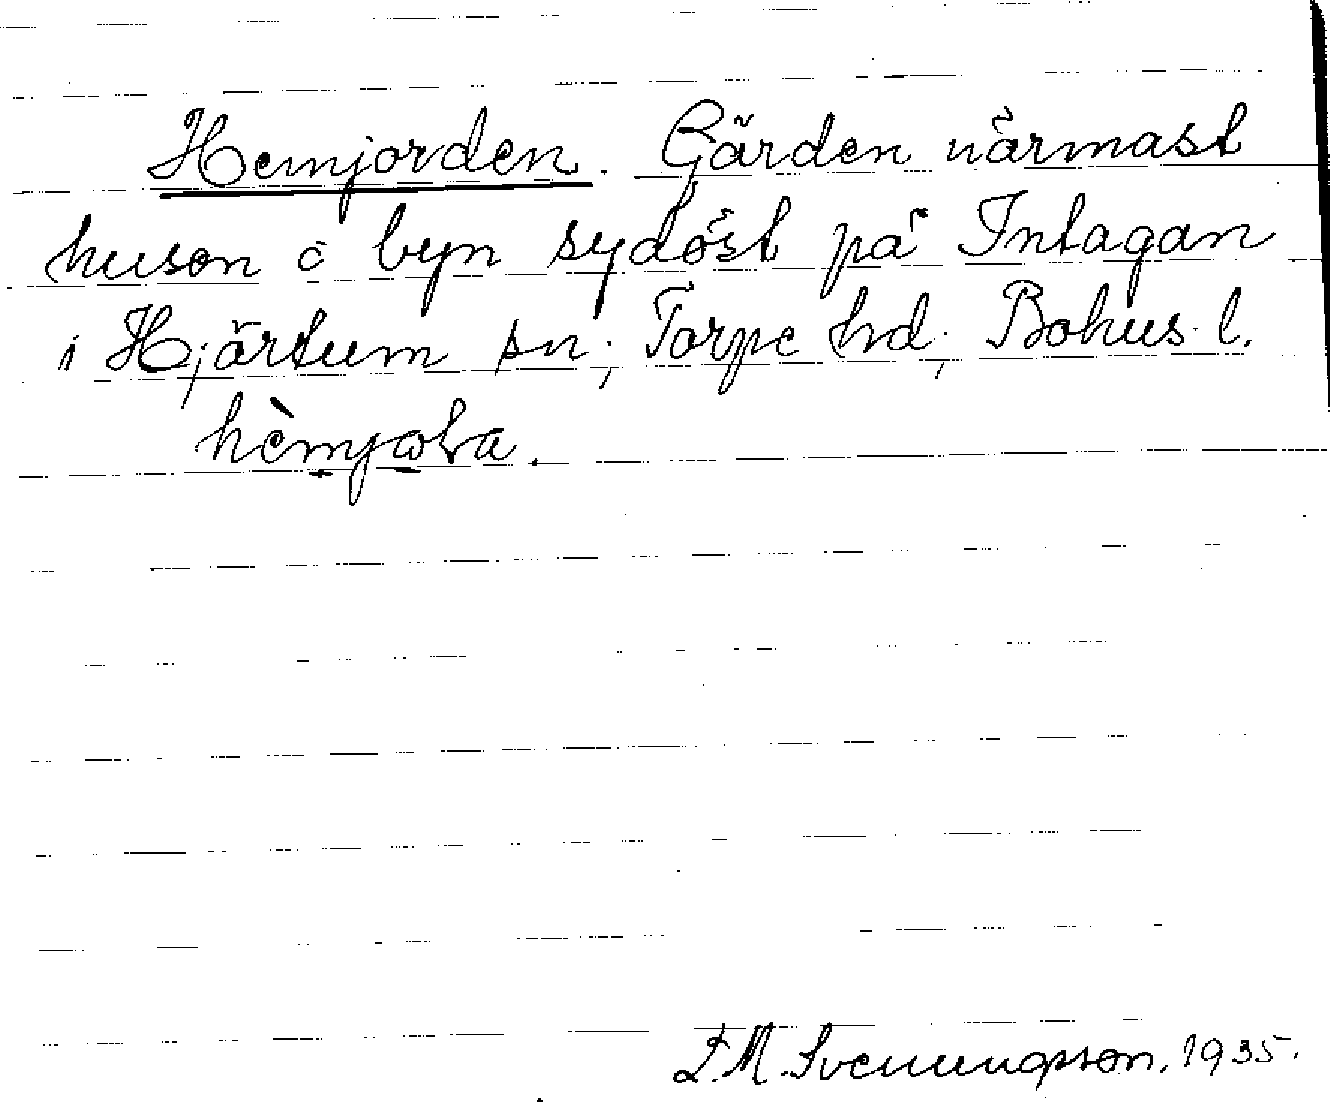 Hemjorden. Gärden närmast
husen i byn sydöst på Intagan
i Hjärtum sn; Torpe hd; Bohus l.
hèmjola.
F. M. Svenungsson. 1935.